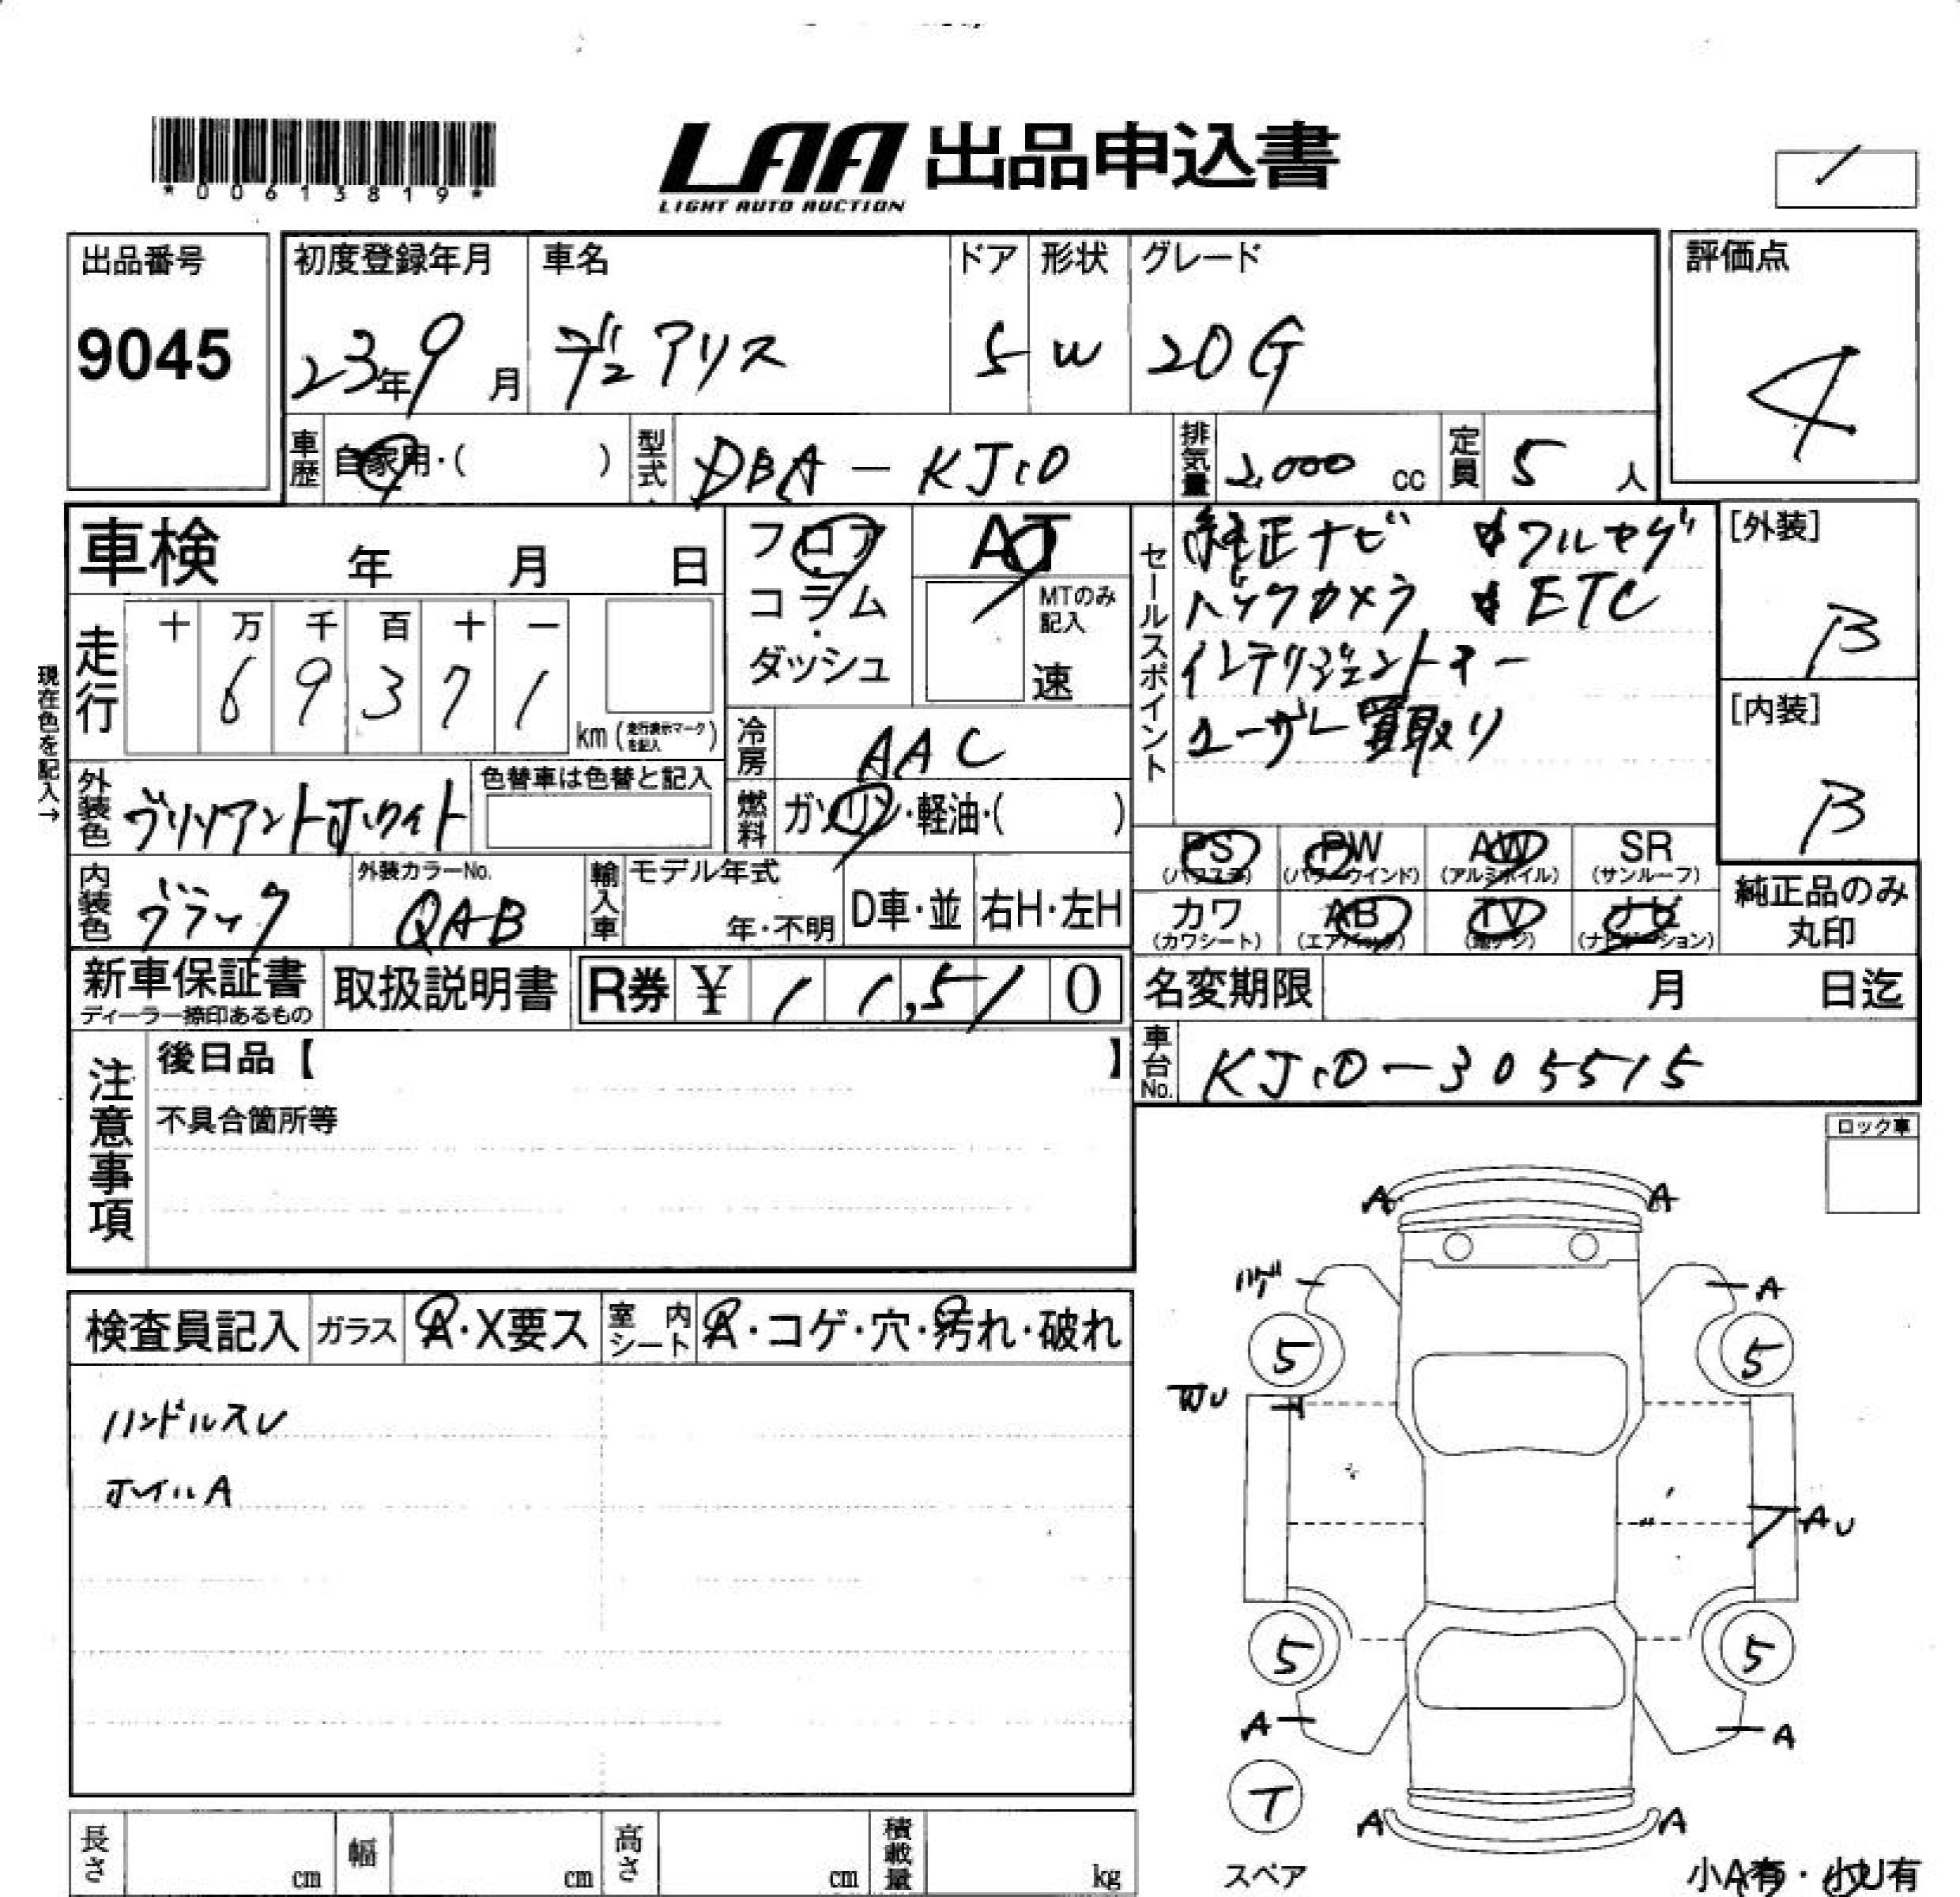 *00613819*
LAA 出品申込書
LIGHT AUTO AUCTION
出品番号
9045
初度登録年月
23年9月
車名
デュアリス
ドア
5
形状
W
グレード
20G
評価点
4
車歴
自家用・( )
型式
DBA-KJ10
排気量
2,000 cc
定員
5 人
車検 年 月 日
フロア
コラム
ダッシュ
AT
MTのみ
記入
速
セールスポイント
純正ナビ フルセグ
バックカメラ ETC
インテリジェントキー
ユーザー買取り
[外装]
B
[内装]
B
現在色を記入→
走行
十 万 千 百 十 一
6 9 3 7 1
km (走行表示マークを記入)
冷房
AAC
外装色
ブリリアントホワイト
色替車は色替と記入
燃料
ガソリン・軽油・( )
PS
(パワステ)
PW
(パワーウインド)
AW
(アルミホイル)
SR
(サンルーフ)
内装色
ブラック
外装カラーNo.
QAB
輸入車
モデル年式
年・不明
D車・並
右H・左H
カワ
(カワシート)
AB
(エアバック)
TV
ナビ
(ナビゲーション)
純正品のみ
丸印
新車保証書
ディーラー捺印あるもの
取扱説明書
R券 ¥ 11,510
名変期限 月 日迄
車台No.
KJ10-305515
注意事項
後日品【 】
不具合箇所等
ロック車
検査員記入
ガラス
A・X要ス
室内シート
A・コゲ・穴・汚れ・破れ
ハンドルスレ
ホイルA
A A
ハゲ A
5 5
WU
AU
5 5
A A
T
A A
スペア
小A有・小U有
長さ cm
幅 cm
高さ cm
積載量 kg